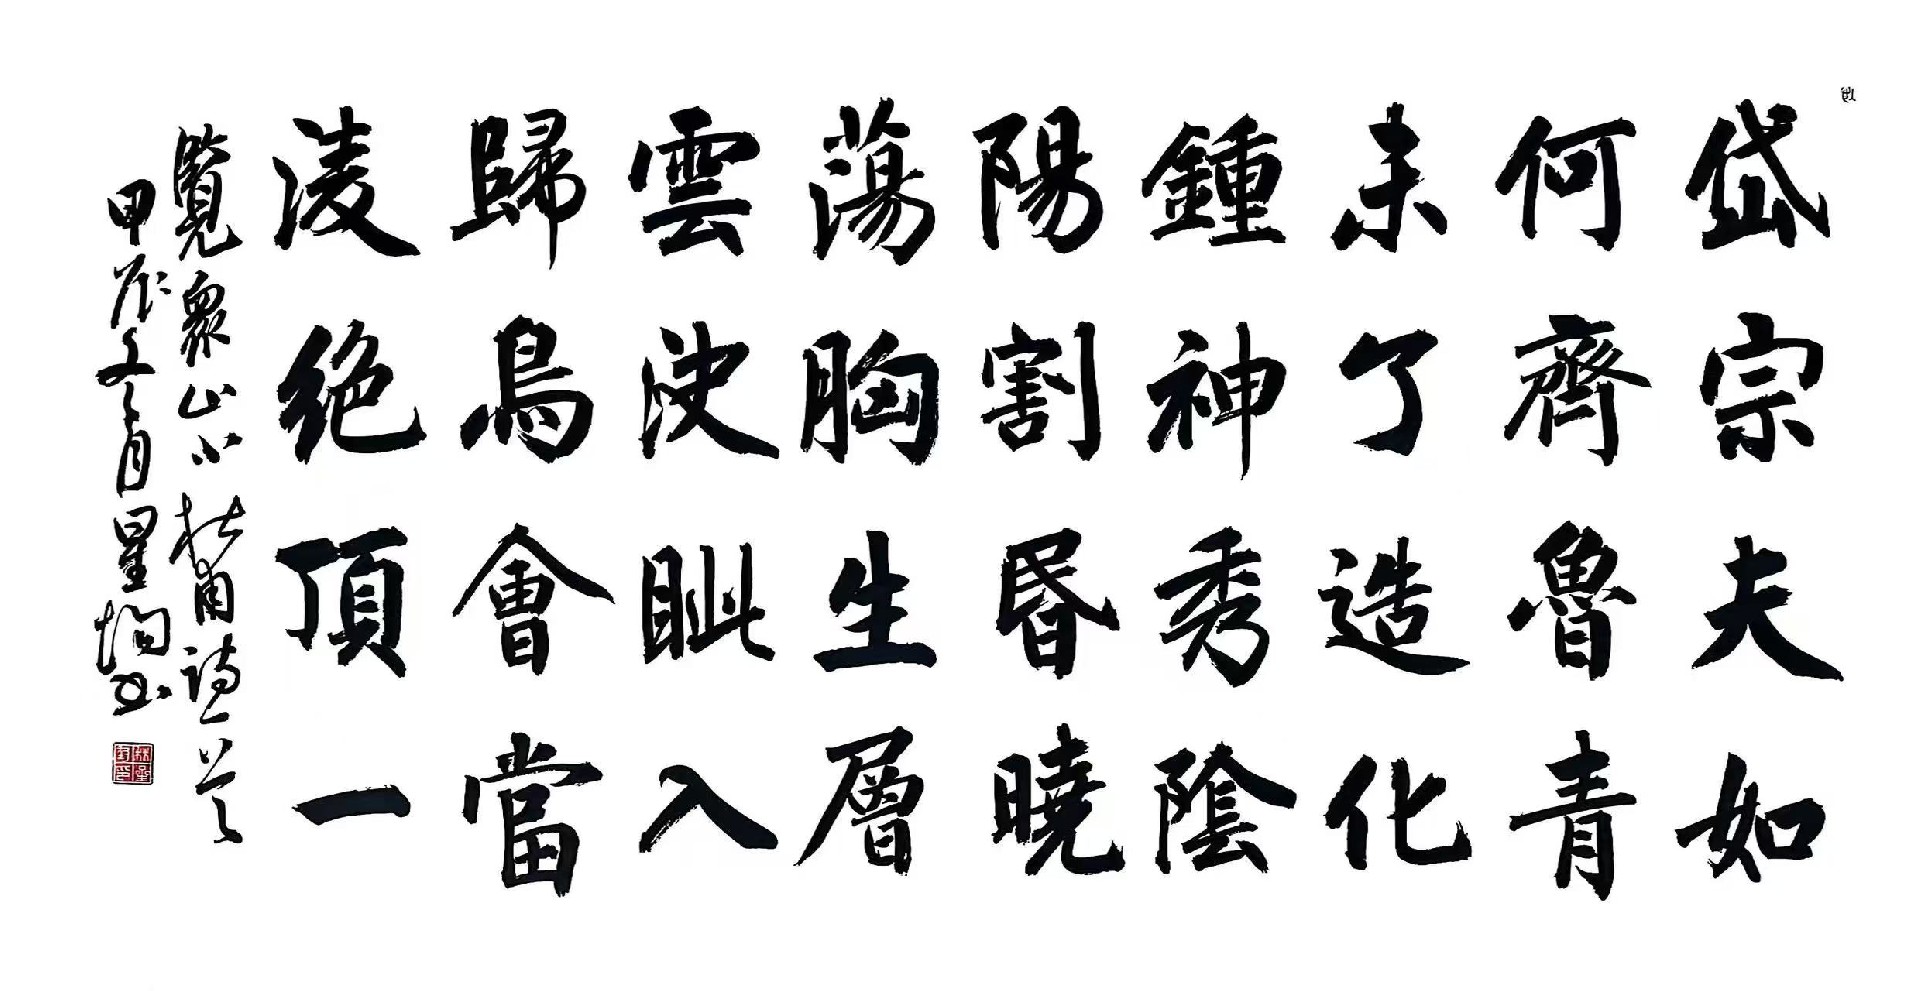 岱宗夫如
何齊魯青
未了造化
鍾神秀陰
陽割昬曉
蕩胸生層
雲決眦入
歸鳥會當
淩絶頂一
覽衆山小杜甫詩一首
甲辰冬月星书